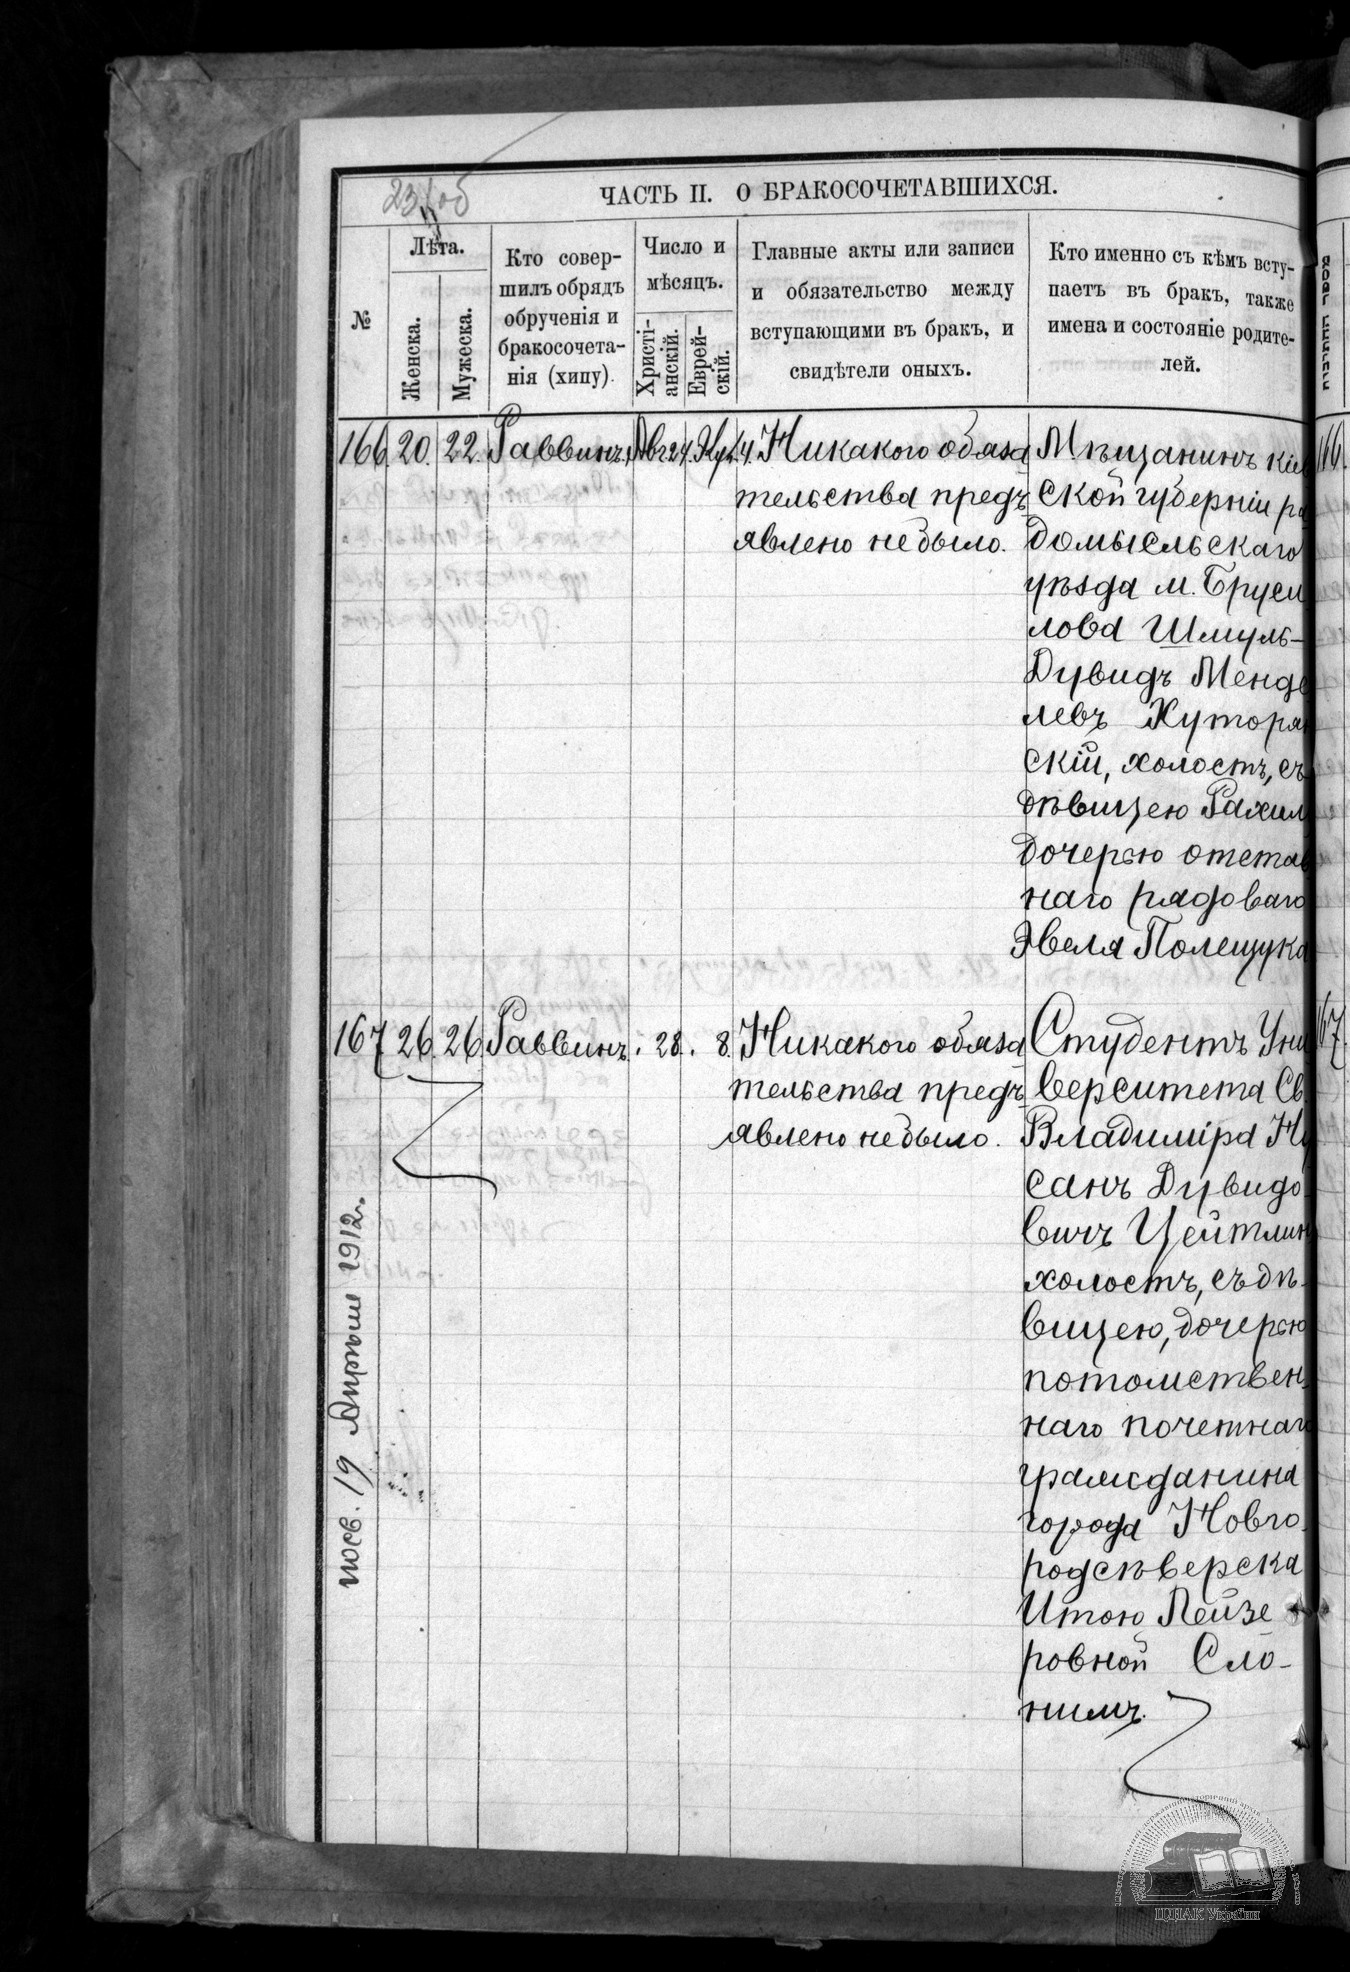 ЧАСТЬ II. О БРАКОСОЧЕТАВШИХСЯ.
№
Лѣта.
Женска.
Мужеска.
Кто совер-
шилъ обрядъ
обрученія и
бракосочета-
нія (хипу).
Число и
мѣсяцъ.
Христі-
анскій.
Еврей-
скій.
Главные акты или записи
и обязательство между
вступающими въ бракъ, и
свидѣтели оныхъ.
Кто именно съ кѣмъ всту-
паетъ въ бракъ, также
имена и состояніе родите-
лей.
166. 20. 22. Раввинъ. Авг. 24. 4. Никакого обяза
тельства предъ
явлено небыло.
Мѣщанинъ кіев
ской губерніи ра
домысльскаго
уѣзда м. Бруси
лова Шмуль-
Дувидъ Менде
левъ Хуторян
скій, холостъ, съ
дѣвицею Рахил
дочерью отстав
наго рядоваго
Эвеля Полещука
167 26 26 Раввинъ. 28. 8. Никакого обяза
тельства предъ
явлено небыло.
Студентъ Уни
верситета Св.
Владиміра Ну
санъ Дувидо-
вичъ Цейтлин
холостъ, съ дѣ-
вицею, дочерью
потомствен-
наго почетнаго
гражданина
города Новго-
родсѣверска
Итою Лейзе
ровной Сло-
нимъ.
19 Апрѣля 1912 г.
166.
167.
ЦДІАК України